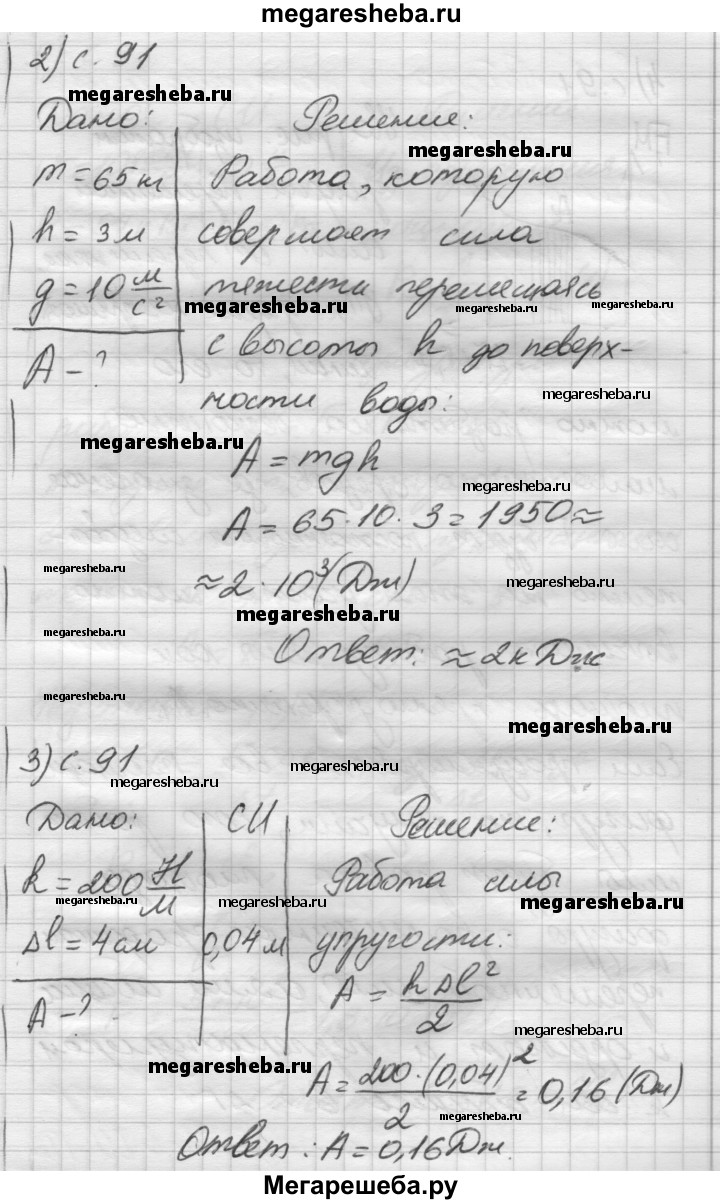 megaresheba.ru
2) с. 91
megaresheba.ru
Дано: Решение:
megaresheba.ru
m = 65 кг Работа, которую
h = 3 м совершает сила
g = 10 м/с² тяжести перемещаясь
megaresheba.ru megaresheba.ru megaresheba.ru
A - ? с высоты h до поверх-
ности воды:
megaresheba.ru
megaresheba.ru
A = mgh
megaresheba.ru
A = 65 · 10 · 3 = 1950 ≈
megaresheba.ru
≈ 2 · 10³ (Дж)
megaresheba.ru
megaresheba.ru
megaresheba.ru
Ответ: ≈ 2 к Дж
megaresheba.ru
megaresheba.ru
3) с. 91
megaresheba.ru
megaresheba.ru
Дано: СИ Решение:
k = 200 Н/м Работа силы
megaresheba.ru megaresheba.ru megaresheba.ru
Δl = 4 см 0,04 м упругости:
A - ? A = kΔl²/2
megaresheba.ru
megaresheba.ru
A = 200 · (0,04)²/2 = 0,16 (Дж)
megaresheba.ru
Ответ: A = 0,16 Дж.
Мегарешеба.ру